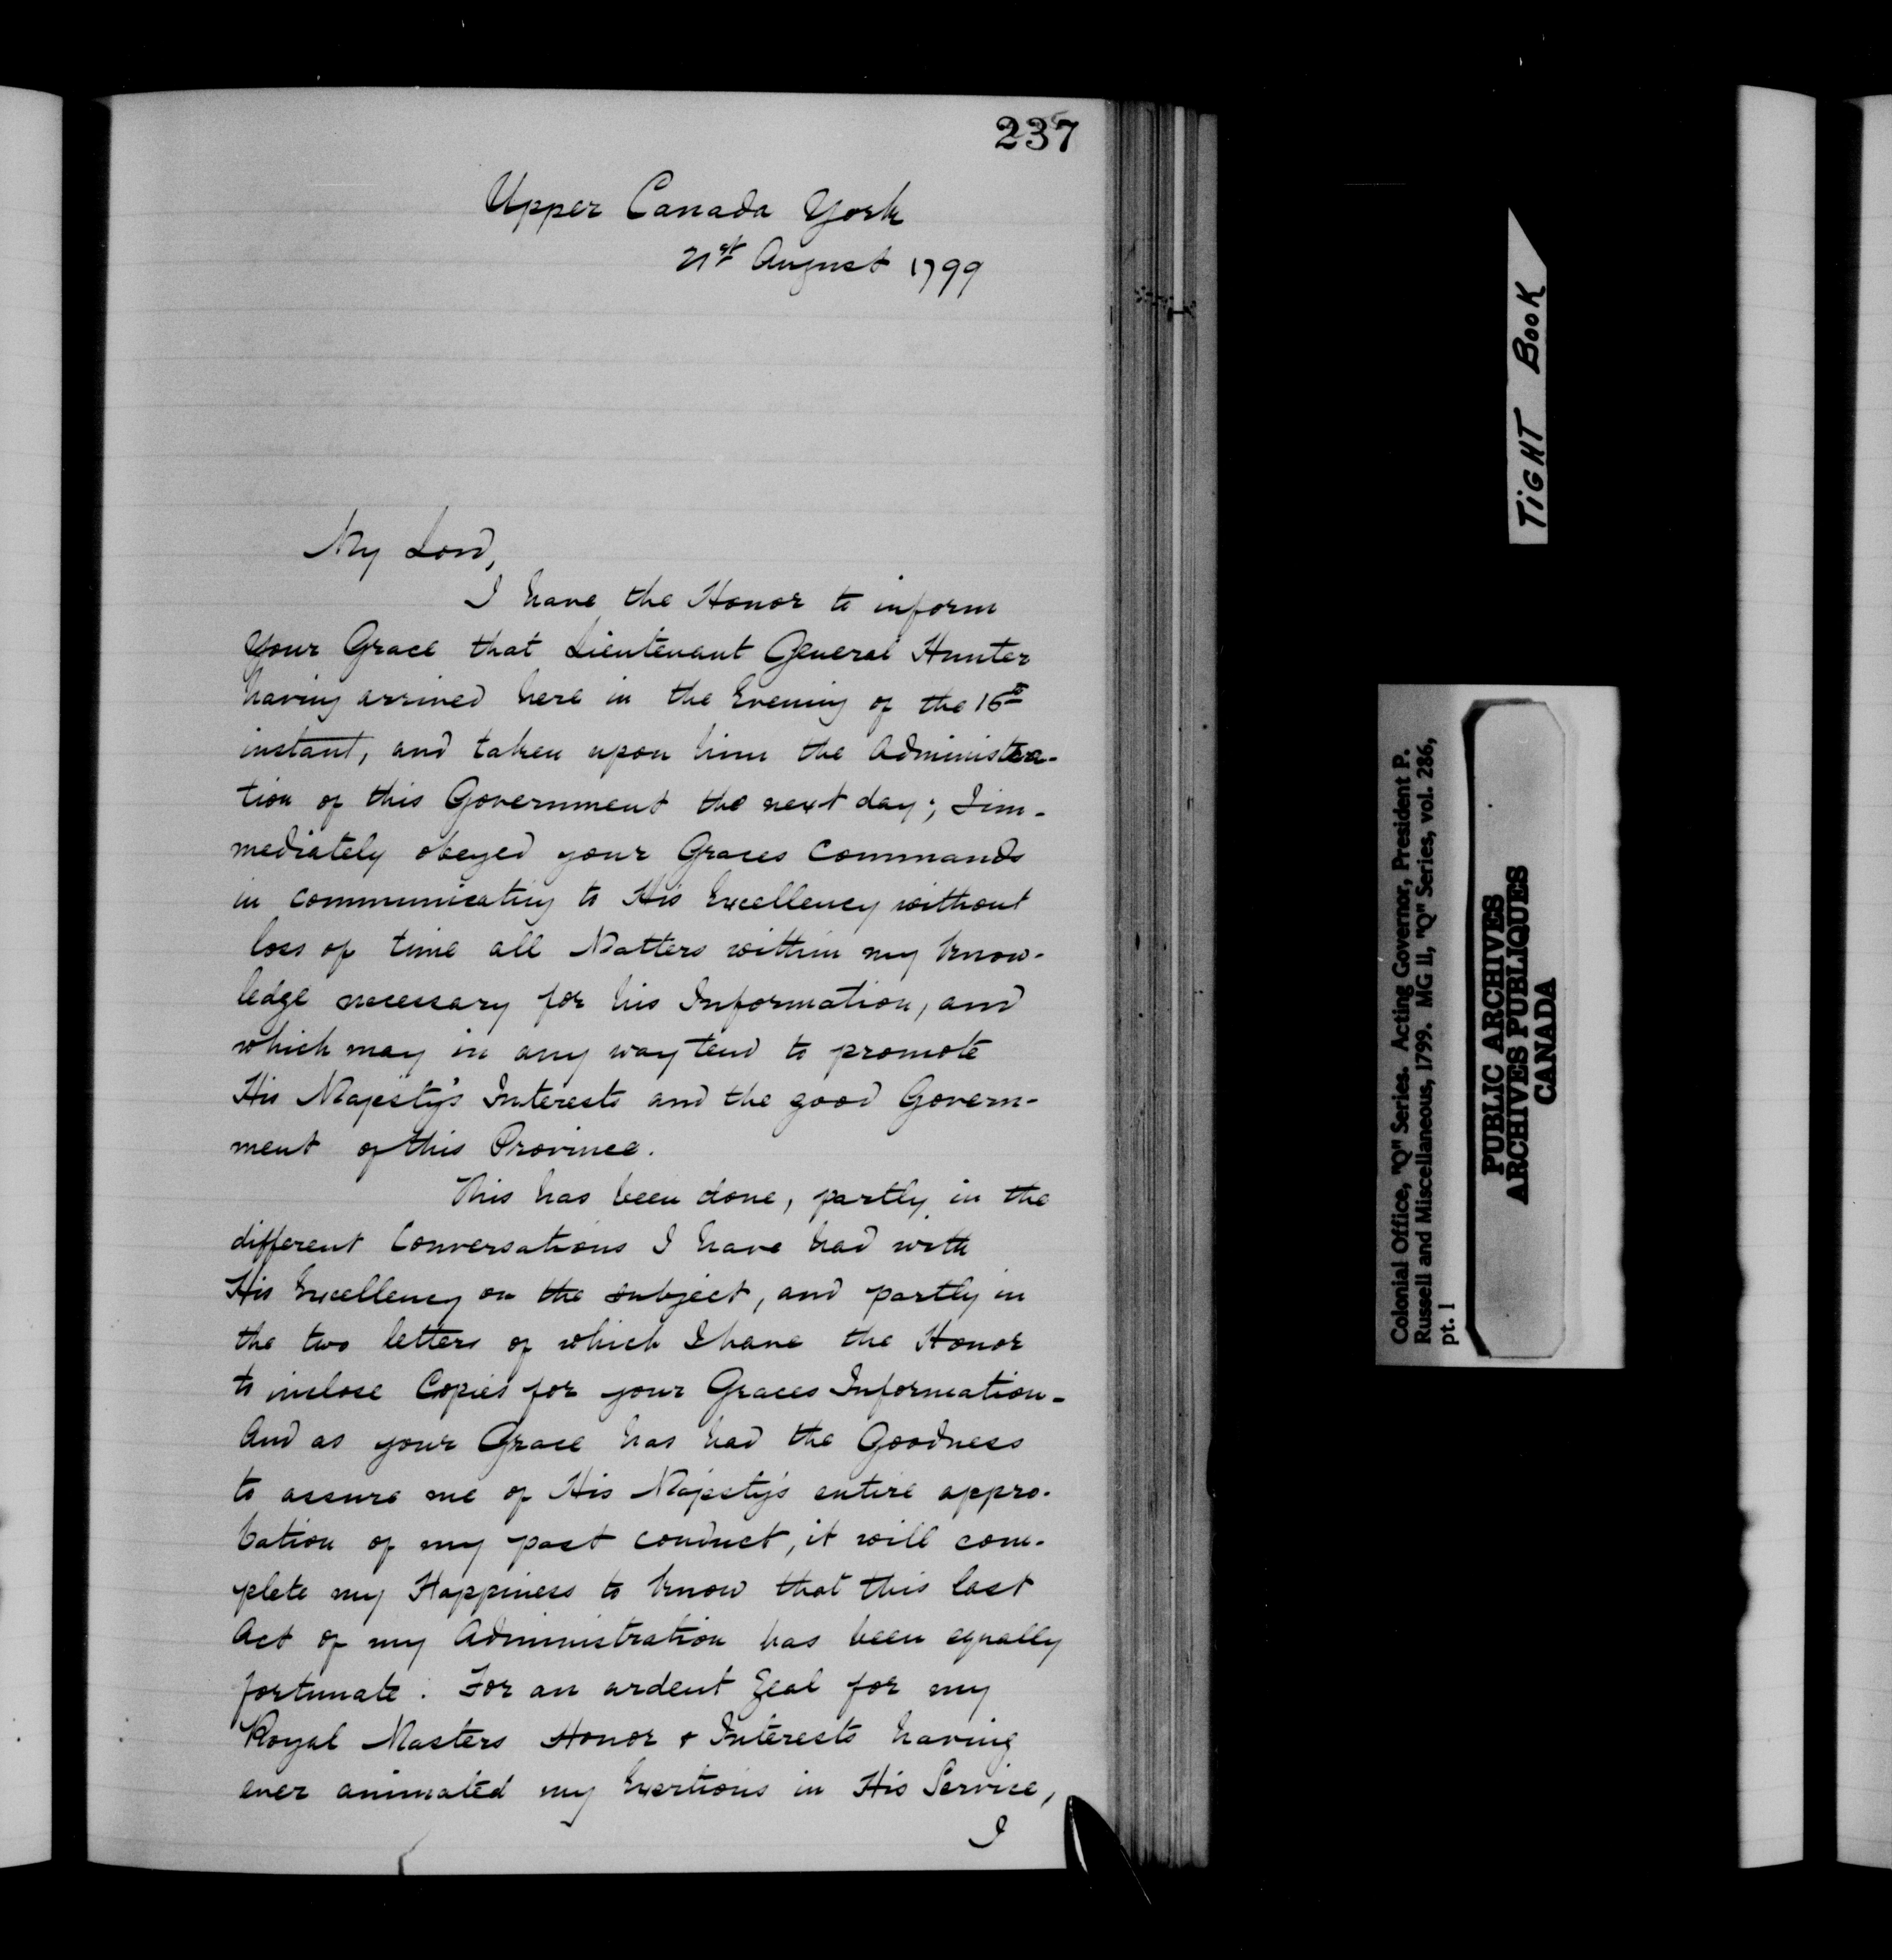 237
Upper Canada York
21st August 1799
My Lord,
I have the Honor to inform
Your Grace that Lieutenant General Hunter
having arrived here in the Evening of the 16th
instant, and taken upon him the Administra-
tion of this Government the next day; I im-
mediately obeyed your Graces Commands
in communicating to His Excellency without
loss of time all Matters within my know-
ledge necessary for his Information, and
which may in any way tend to promote
His Majesty's Interests and the good Govern-
ment of this Province.
This has been done, partly in the
different Conversations I have had with
His Excellency on the subject, and partly in
the two letters of which I have the Honor
to inclose Copies for your Graces Information-
And as your Grace has had the Goodness
to assure me of His Majesty's entire appro-
bation of my past conduct, it will com-
plete my Happiness to know that this last
Act of my Administration has been equally
fortunate. For an ardent Zeal for my
Royal Masters Honor & Interests having
ever animated my Exertions in His Service,
I
TiGHT BooK
Colonial Office, "Q" Series. Acting Governor, President P.
Russell and Miscellaneous, 1799. MG 11, "Q" Series, vol. 286,
pt. 1
PUBLIC ARCHIVES
ARCHIVES PUBLIQUES
CANADA